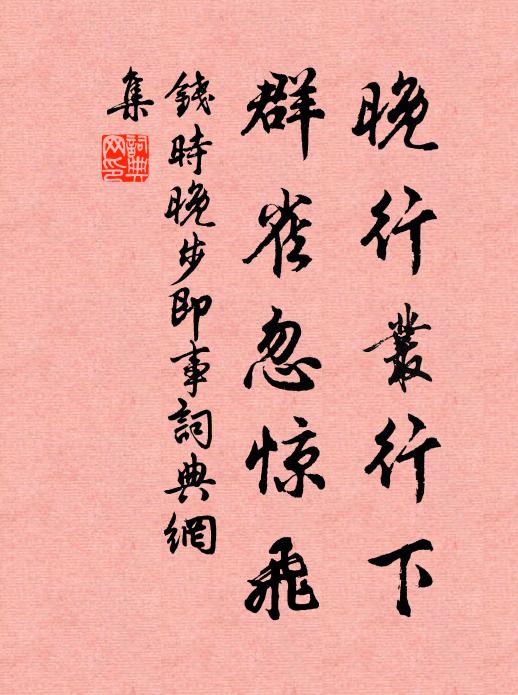 晚行叢行下
群雀忽惊飛
錢時晚步即事詞典網
集
詞典
网印